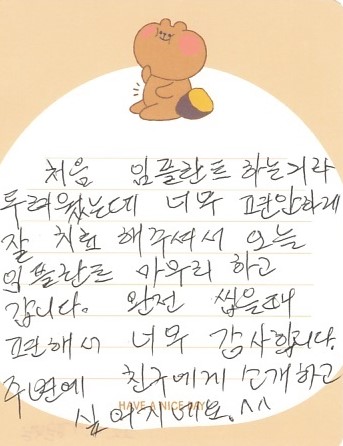 처음 임플란트 하는거라
두려웠는데 너무 편안하게
잘 치료 해주셔서 오늘
임플란트 마무리 하고
갑니다. 완전 씹을때
편해서 너무 감사합니다.
주변에 친구에게 소개하고
HAVE A NICE DAY
싶어지네요. ^^